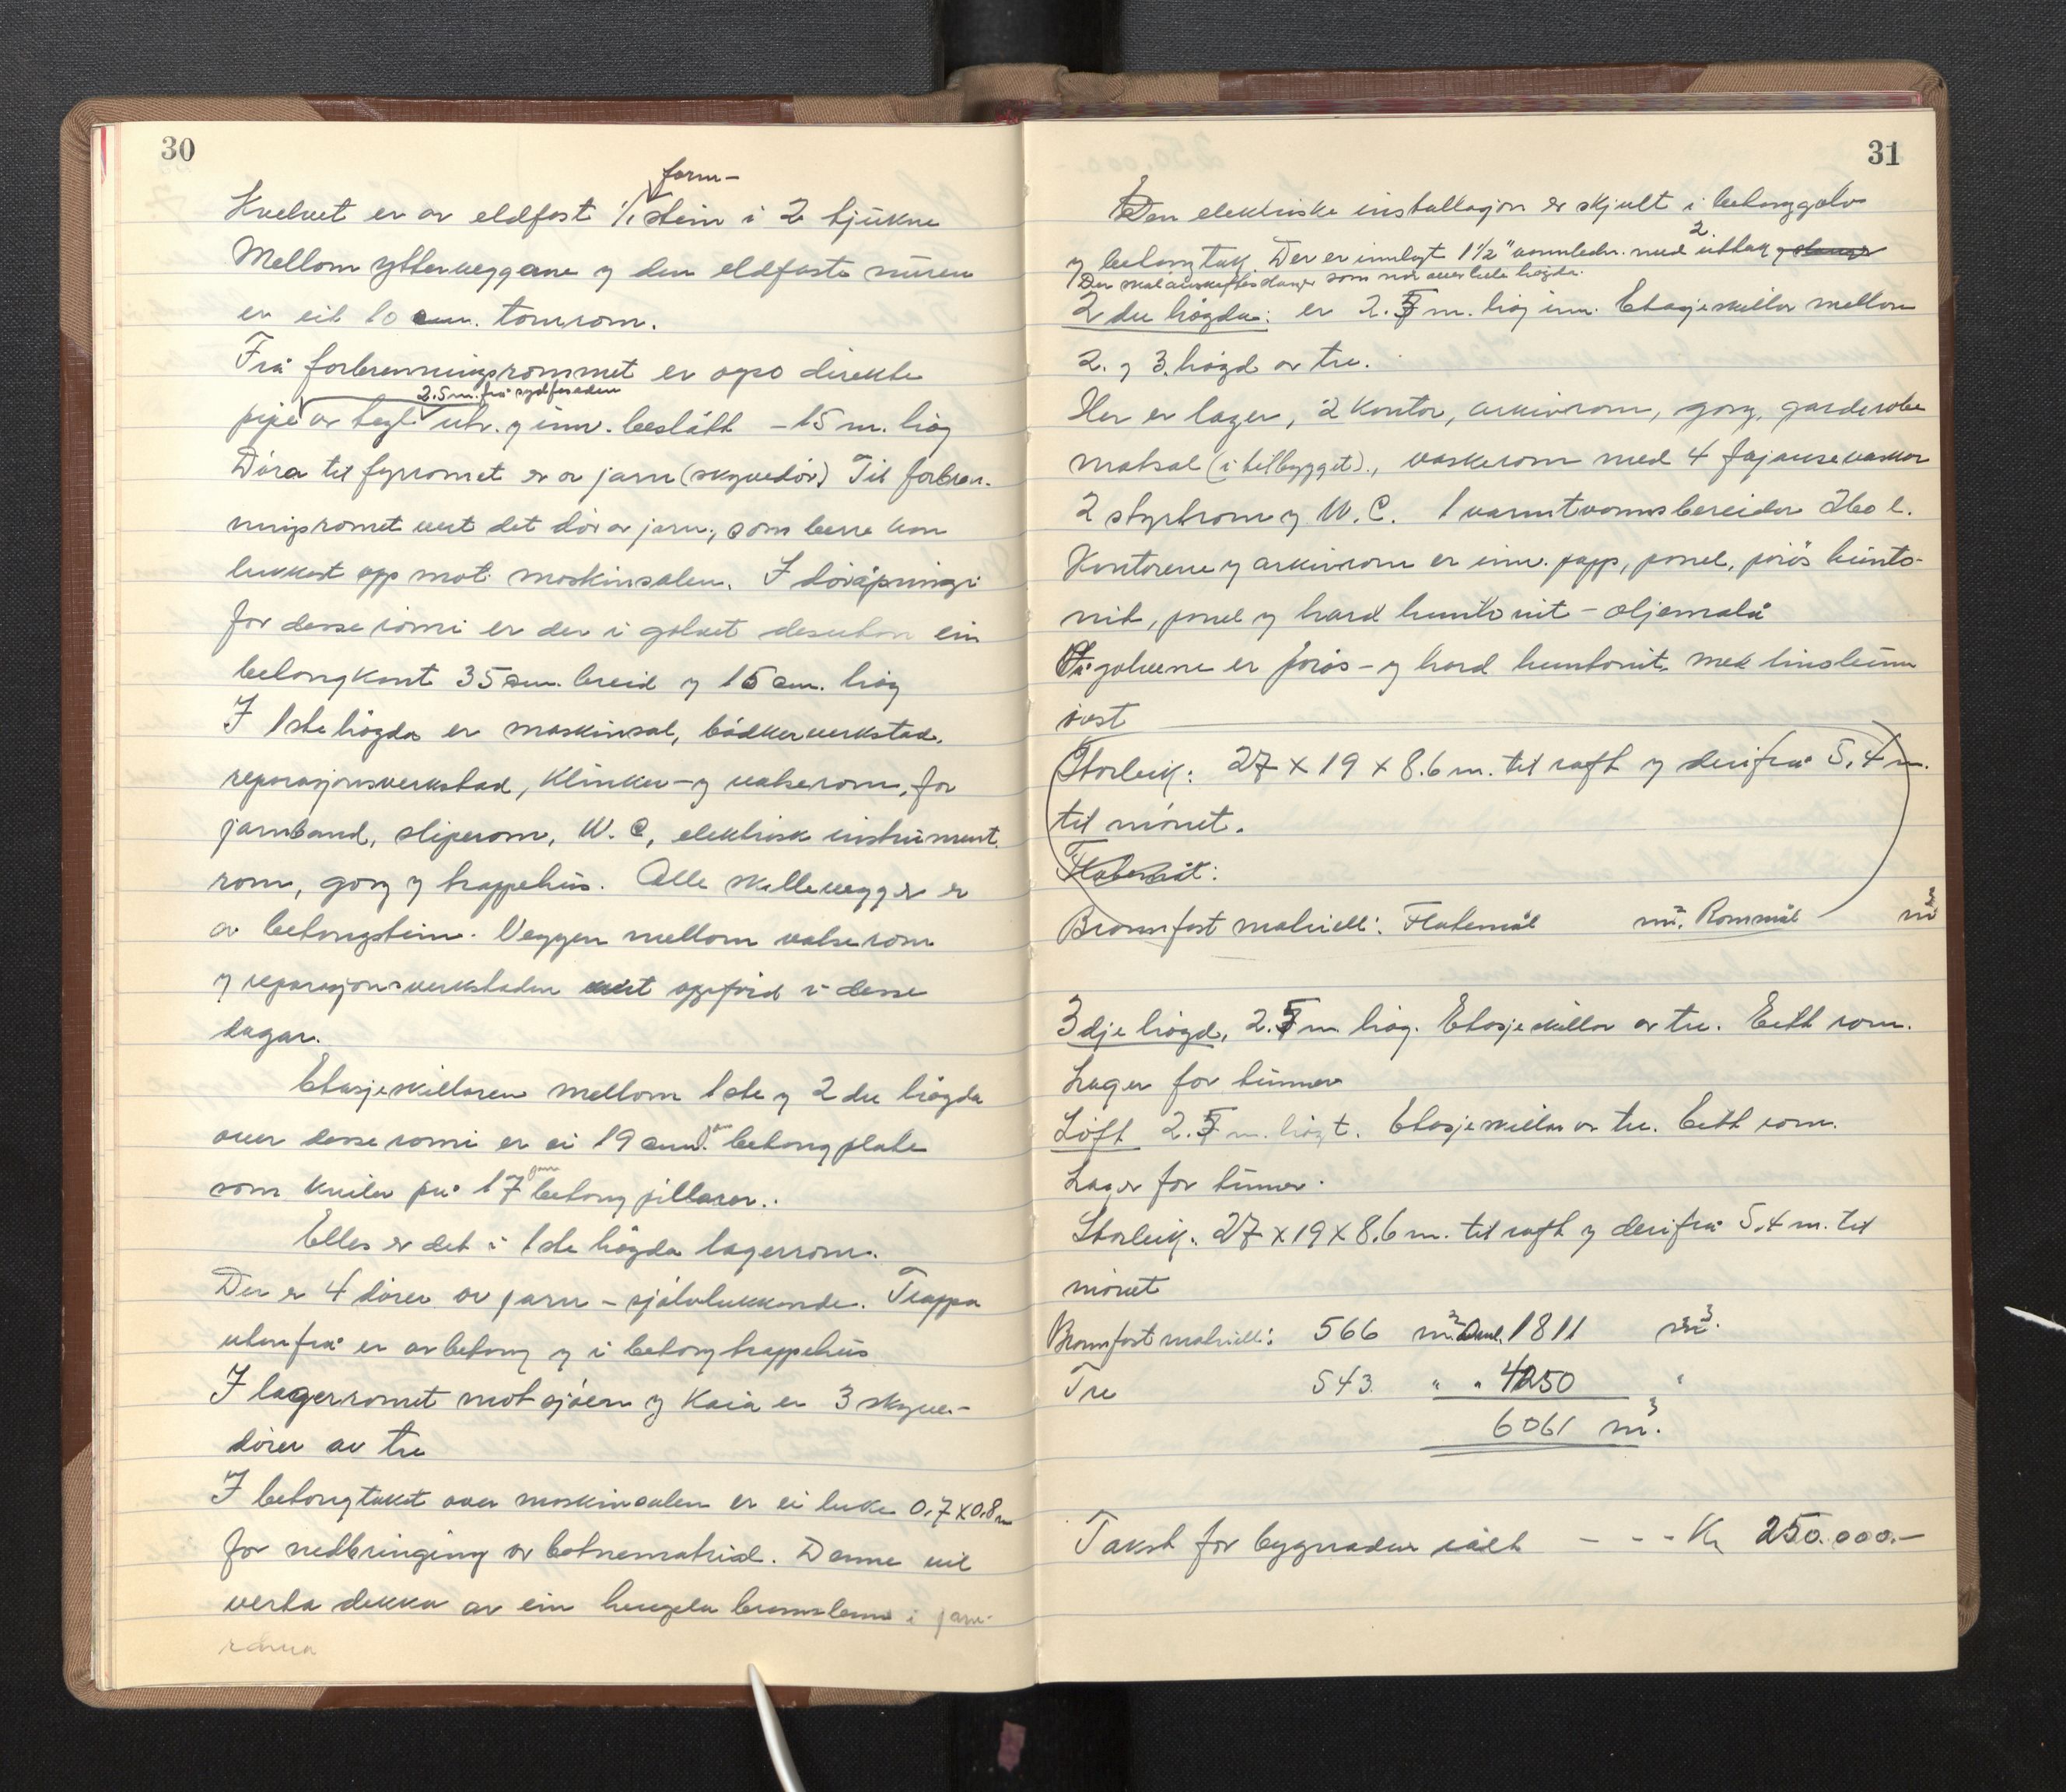 30
form-
Kvelvet er av eldfast 1/1 stein i 2 tjukne
Mellom ytterveggane og den eldfaste muren
er eit 10 cm. tomrom.
Frå forbrenningsrommet er også direkte
2.5 m. frå sydfasaden
pipe av tegl utv. og innv. beslått – 15 m. høg
Døra til fyrromet er av jarn (skyvedör) Til forbren-
ningsromet vert det dör av jarn, som berre kan
lukkast opp mot maskinsalen. I döråpningi
for desse romi er der i golvet desutan ein
betongkant 35 cm. breid og 15 cm. høg
I 1ste høgda er maskinsal, bödkerverkstad,
reparasjonsverkstad, klinker- og valserom, for
jarnband, sliperom, W.C, elektrisk instrument-
rom, gang og trappehus. Alle skillevegger er
av betongstein. Veggen mellom valserom
og reparasjonsverkstaden vert oppförd i desse
dagar.
Etasjeskillaren mellom 1ste og 2dre høgda
over desse romi er ei 19 cm. jarn betongplate
som kviler på 17 jarn betongpillarer.
Elles er det i 1ste högda lagerrom.
Der er 4 dörer av jarn – sjølvlukkende. Trappa
utanfrå er av betong og i betongtrappehus
I lagerromet mot sjöen og kaia er 3 skyve-
dörer av tre
I betongtaket over maskinsalen er ei luke 0,7 x 0,8 m
for nedbringing av botnematrial. Denne vil
verta dekka av ein hengsla brannlem i jarn-
råma
31
Den elektriske installasjon er skjult i betonggolv
og betongtak Der er innlagt 1½" vannledn. med 2 uttak og slanger
Der skal anskaffes slanger som når over hele høgda.
2dre högda: er 2.5 m. høg inn. Etasjeskiller mellom
2. og 3. høgd av tre.
Her er lager, 2 kontor, arkivrom, gang, garderobe
matsal (i tilbygget)., vaskerom med 4 fajansevasker
2 styrtrom og W.C. 1 varmtvannsbereider 260 l.
Kontorene og arkivrom er innv. papp, panel, porös hunto-
nit, panel og hard huntonit – oljemala
På golvene er porös- og hard huntonit med linoleum
övst
Storleik: 27 x 19 x 8.6 m. til raft og derifrå 5,4 m.
til mönet.
Flatemål:
Brannfast matriell: Flatemål m². Rommål m³
3dje högd, 2.5 m høg. Etasjeskiller av tre. Eitt rom.
Lager for tunner
Loft 2.5 m. høgt. Etasjeskiller av tre. Eitt rom.
Lager for tunner.
Storleik: 27 x 19 x 8,6 m. til raft og derifrå 5,4 m. til
mönet
Brannfast matriell: 566 m² 1811 m³.
Tre 543 " " 4250 "
6061 m³.
Takst for bygnaden ialt – – – Kr 250.000.–